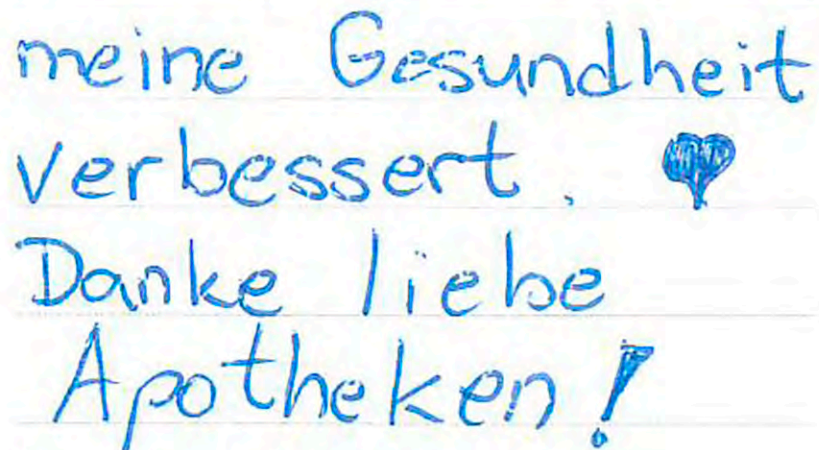 meine Gesundheit
verbessert. ♥
Danke liebe
Apotheken!